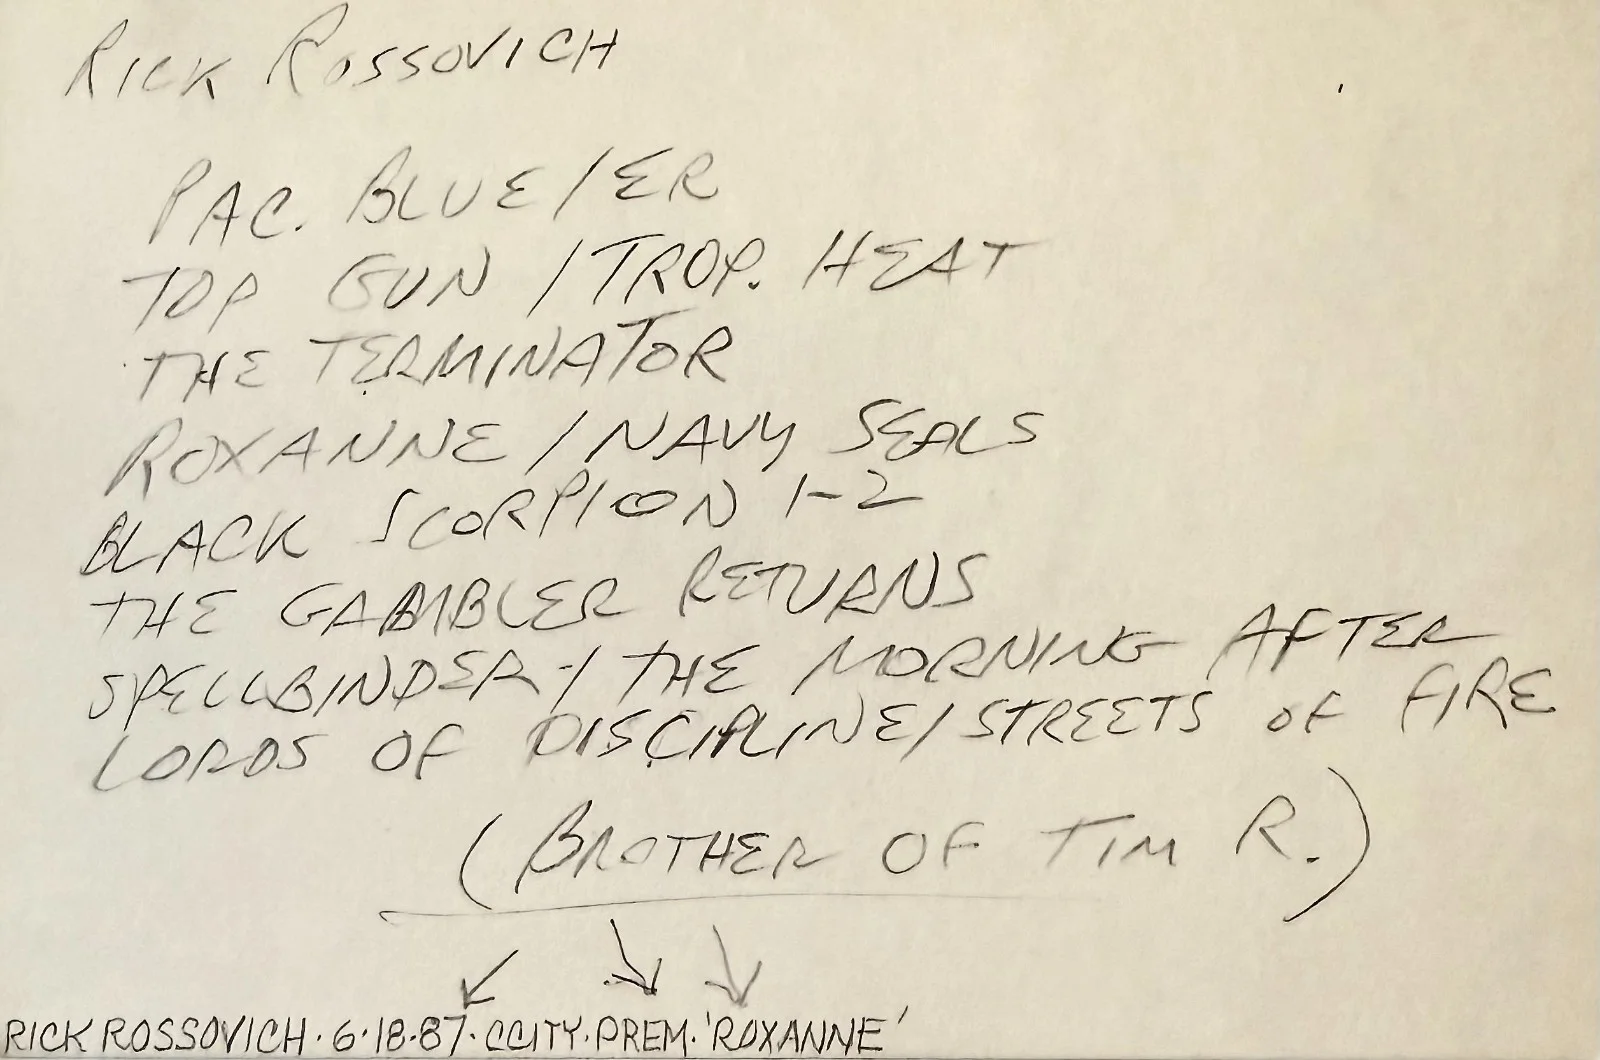 RICK ROSSOVICH
PAC. BLUE/ER
TOP GUN /TROP. HEAT
THE TERMINATOR
ROXANNE /NAVY SEALS
BLACK SCORPION 1-2
THE GAMBLER RETURNS
SPELLBINDER-/THE MORNING AFTER
LORDS OF DISCIPLINE/STREETS OF FIRE
(BROTHER OF TIM R.)
RICK ROSSOVICH·6·18·87·CCITY·PREM·'ROXANNE'